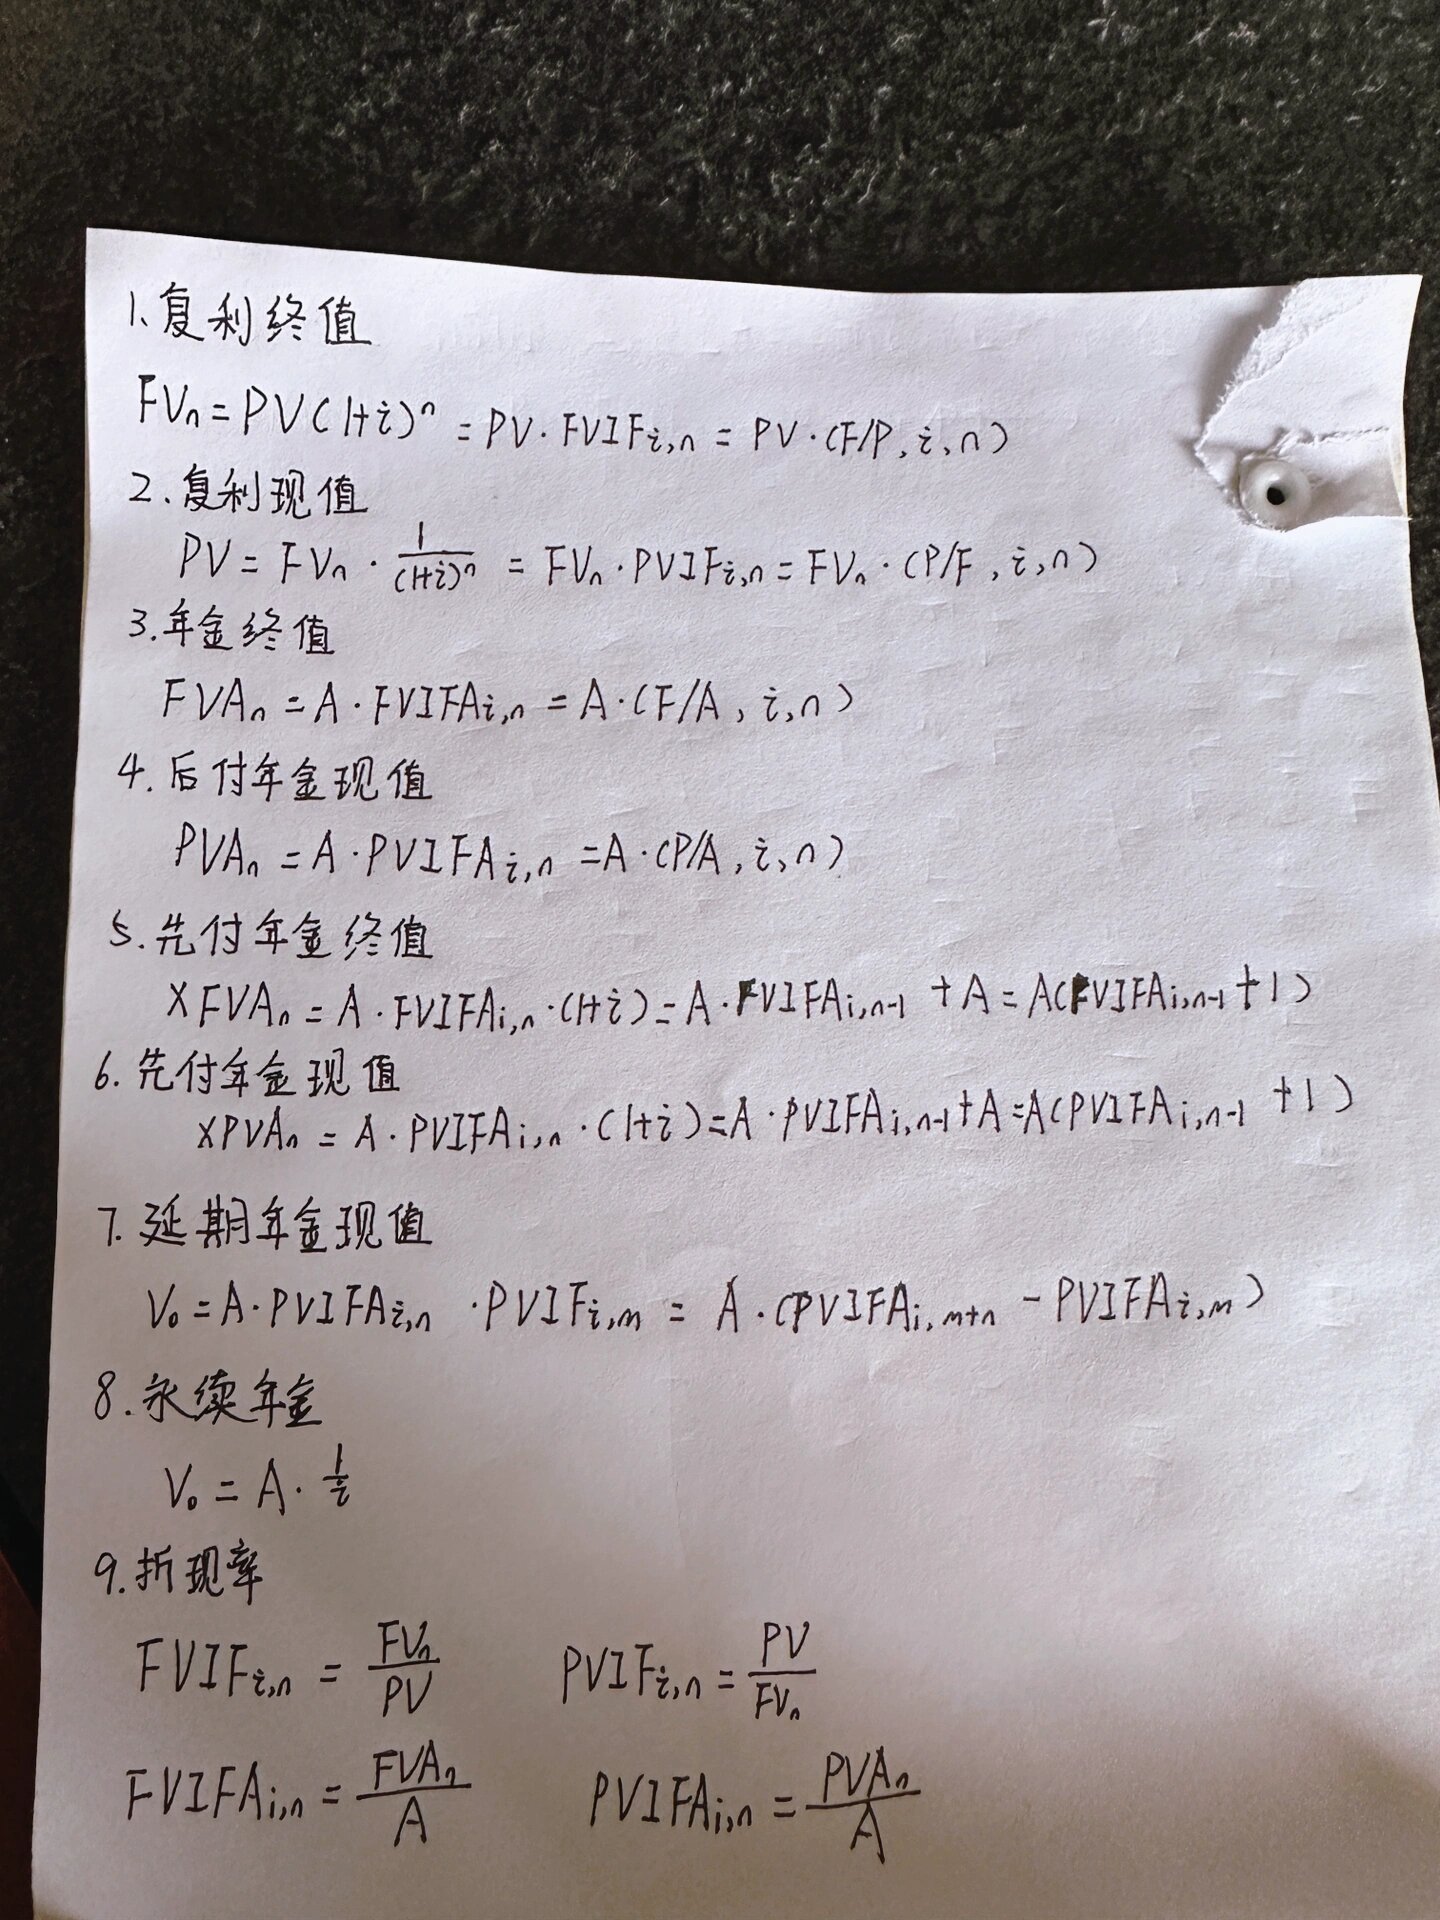 1、复利终值
FVₙ=PV(1+i)ⁿ =PV·FVIFi,n = PV·(F/P,i,n)
2、复利现值
PV=FVₙ·1/(1+i)ⁿ = FVₙ·PVIFi,n=FVₙ·(P/F,i,n)
3.年金终值
FVAₙ=A·FVIFAi,n=A·(F/A,i,n)
4.后付年金现值
PVAₙ=A·PVIFAi,n=A·(P/A,i,n)
5.先付年金终值
XFVAₙ=A·FVIFAi,n·(1+i)=A·FVIFAi,n-1+A=A(FVIFAi,n-1+1)
6.先付年金现值
XPVAₙ=A·PVIFAi,n·(1+i)=A·PVIFAi,n-1+A=A(PVIFAi,n-1+1)
7.延期年金现值
V₀=A·PVIFAi,n·PVIFi,m=A·(PVIFAi,m+n-PVIFAi,m)
8.永续年金
V₀=A·1/i
9.折现率
FVIFi,n=FVₙ/PV PVIFi,n=PV/FVₙ
FVIFAi,n=FVAₙ/A PVIFAi,n=PVAₙ/A